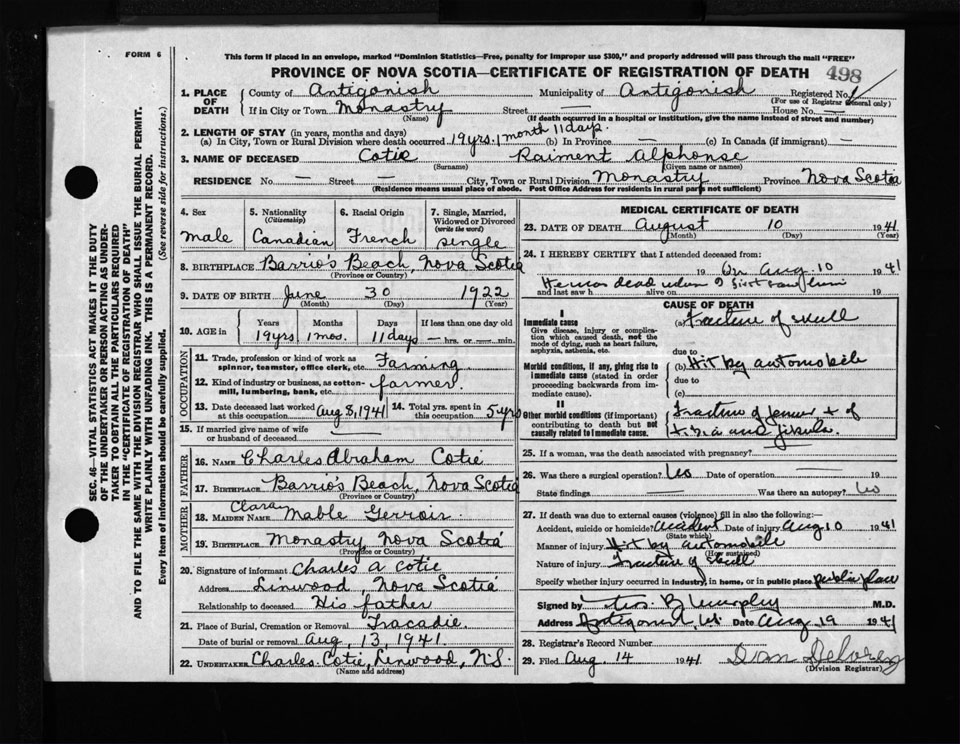 FORM 6
This form if placed in an envelope, marked "Dominion Statistics—Free, penalty for improper use $300," and properly addressed will pass through the mail "FREE"
PROVINCE OF NOVA SCOTIA—CERTIFICATE OF REGISTRATION OF DEATH
498
1. PLACE OF DEATH County of Antigonish Municipality of Antigonish Registered No. 1
(For use of Registrar General only)
If in City or Town Monastry Street — House No. —
(Name) (If death occurred in a hospital or institution, give the name instead of street and number)
2. LENGTH OF STAY (in years, months and days)
(a) In City, Town or Rural Division where death occurred 19 yrs. 1 month 11 days. (b) In Province — (c) In Canada (if immigrant) —
3. NAME OF DECEASED Cotie Raiment Alphonse
(Surname) (Given name or names)
RESIDENCE No. — Street — City, Town or Rural Division Monastry Province Nova Scotia
(Residence means usual place of abode. Post Office Address for residents in rural parts not sufficient)
4. Sex Male
5. Nationality (Citizenship) Canadian
6. Racial Origin French
7. Single, Married, Widowed or Divorced (write the word) single
8. BIRTHPLACE Barrio's Beach, Nova Scotia
(Province or Country)
9. DATE OF BIRTH June 30 1922
(Month) (Day) (Year)
10. AGE in Years Months Days If less than one day old
19 yrs 1 mos. 11 days — hrs. or — min.
OCCUPATION
11. Trade, profession or kind of work as spinner, teamster, office clerk, etc. Farming
12. Kind of industry or business, as cotton-mill, lumbering, bank, etc. farmer.
13. Date deceased last worked at this occupation Aug 8, 1941 14. Total yrs. spent in this occupation 5 yrs
15. If married give name of wife or husband of deceased —
FATHER
16. NAME Charles Abraham Cotie
17. BIRTHPLACE Barrio's Beach, Nova Scotia
(Province or Country)
MOTHER
18. MAIDEN NAME Clara Mable Gerroir
19. BIRTHPLACE Monastry, Nova Scotia
(Province or Country)
20. Signature of informant Charles A Cotie
Address Linwood, Nova Scotia
Relationship to deceased His father
21. Place of Burial, Cremation or Removal Tracadie.
Date of burial or removal Aug. 13, 1941.
22. UNDERTAKER Charles Cotie, Linwood, N.S.
(Name and address)
MEDICAL CERTIFICATE OF DEATH
23. DATE OF DEATH August 10 1941
(Month) (Day) (Year)
24. I HEREBY CERTIFY that I attended deceased from:
19 On Aug. 10 1941
He was dead when I first saw him
and last saw h alive on 19
CAUSE OF DEATH
I
Immediate cause
Give disease, injury or complication which caused death, not the mode of dying, such as heart failure, asphyxia, asthenia, etc.
(a) Fracture of skull
due to
Morbid conditions, if any, giving rise to immediate cause (stated in order proceeding backwards from immediate cause).
(b) Hit by automobile
due to
(c)
II
Other morbid conditions (if important) contributing to death but not causally related to immediate cause.
Fracture of femur & of tibia and fibula.
25. If a woman, was the death associated with pregnancy? —
26. Was there a surgical operation? No Date of operation — 19
State findings — Was there an autopsy? No
27. If death was due to external causes (violence) fill in also the following:—
Accident, suicide or homicide? Accident Date of injury Aug 10 1941
(State which)
Manner of injury Hit by automobile
(How sustained)
Nature of injury Fracture of skull
Specify whether injury occurred in industry, in home, or in public place public place
Signed by B Murphy M.D.
Address Antigonish, N.S. Date Aug 19 1941
28. Registrar's Record Number
29. Filed Aug. 14 1941
(Division Registrar)
SEC. 46—VITAL STATISTICS ACT MAKES IT THE DUTY
OF THE UNDERTAKER OR PERSON ACTING AS UNDER-
TAKER TO OBTAIN ALL THE PARTICULARS REQUIRED
IN THE "CERTIFICATE OF REGISTRATION OF DEATH"
AND TO FILE THE SAME WITH THE DIVISION REGISTRAR WHO SHALL ISSUE THE BURIAL PERMIT.
WRITE PLAINLY WITH UNFADING INK. THIS IS A PERMANENT RECORD.
Every item of information should be carefully supplied. (See reverse side for instructions.)